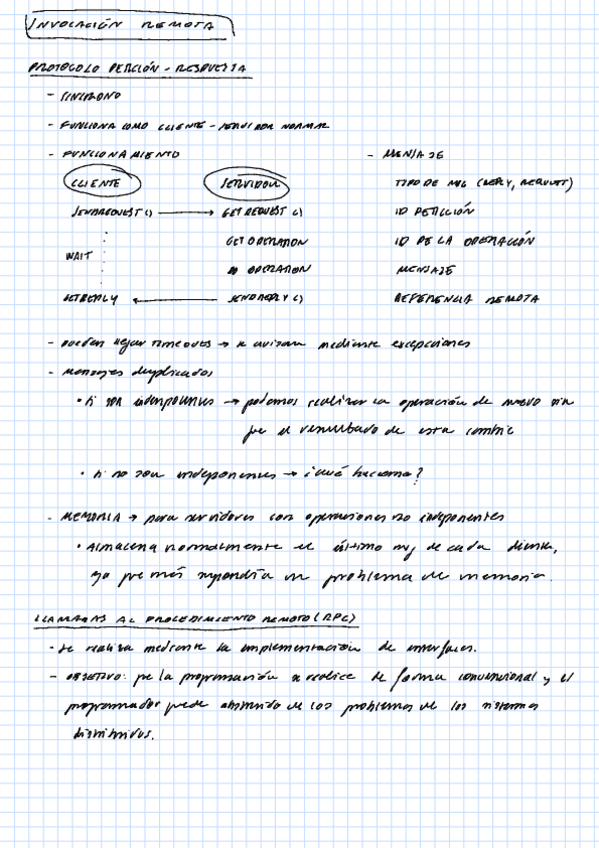 INVOCACIÓN REMOTA
PROTOCOLO PETICIÓN - RESPUESTA
- SÍNCRONO
- FUNCIONA COMO CLIENTE - SERVIDOR NORMAL
- FUNCIONAMIENTO
CLIENTE SERVIDOR
SENDREQUEST() → GETREQUEST()
GETOPERATION
WAIT
DO OPERATION
GETREPLY ← SENDREPLY()
- MENSAJE
TIPO DE MSG (REPLY, REQUEST)
ID PETICIÓN
ID DE LA OPERACIÓN
MENSAJE
REFERENCIA REMOTA
- pueden llegar timeouts → se avisan mediante excepciones
- mensajes duplicados
• si son idempotentes → podemos realizar la operación de nuevo sin
que el resultado de esta cambie
• si no son → ¿qué hacemos?
- MEMORIA → para servidores con operaciones no
• Almacena normalmente el último msj de cada cliente,
ya que más supondría un problema de memoria.
LLAMADAS AL PROCEDIMIENTO REMOTO (RPC)
• se realiza mediante la implementación de interfaces.
- OBJETIVO: que la programación se realice de forma convencional y el
programador quede abstraído de los problemas de los sistemas
distribuidos.